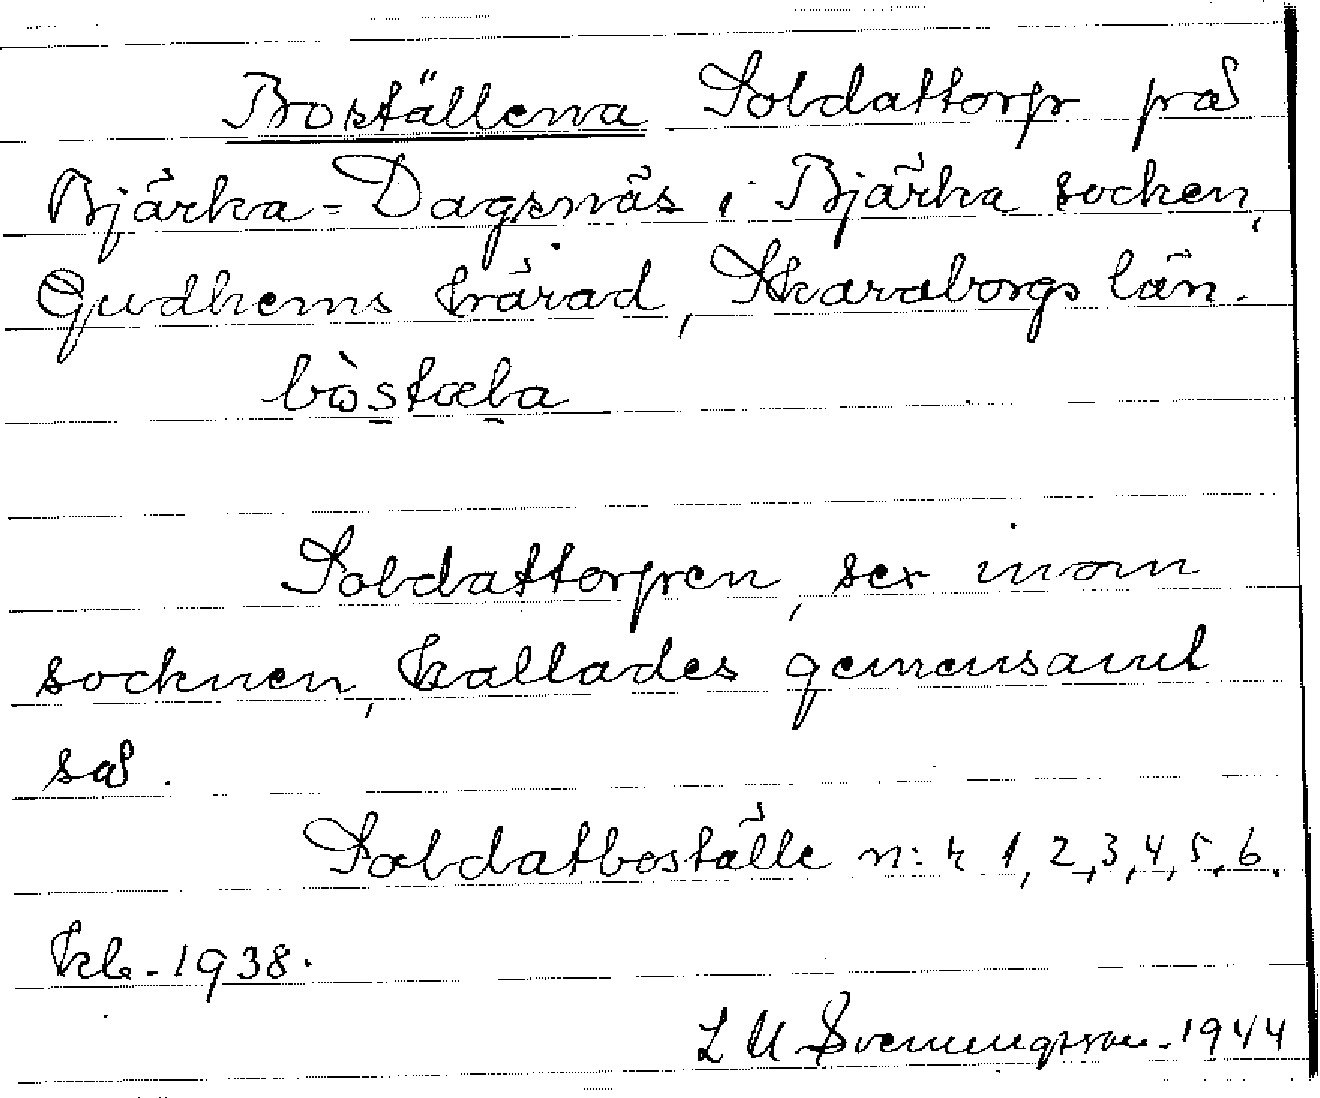 Boställena Soldattorp på
Bjärka-Dagsnäs i Bjärka socken,
Gudhems härad, Skaraborgs län.
bòstæla
Soldattorpen, sex inom
socknen, kallades gemensamt
så.
Soldatboställe n:r 1, 2, 3, 4, 5, 6.
kb. 1938.
L M Svenungsson. 1944